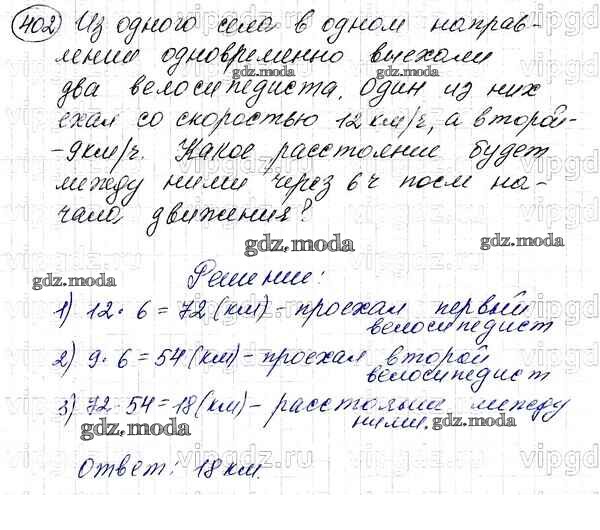 402 Из одного села в одном направ-
лении одновременно выехали
два велосипедиста. Один из них
ехал со скоростью 12 км/ч, а второй-
-9км/ч. Какое расстояние будет
между ними через 6ч после на-
чала движения?
gdz.moda
Решение:
1) 12 · 6 = 72 (км) - проехал первый
велосипедист
2) 9 · 6 = 54 (км) - проехал второй
велосипедист
3) 72 - 54 = 18 (км) - расстояние между
ними.
Ответ: 18 км.